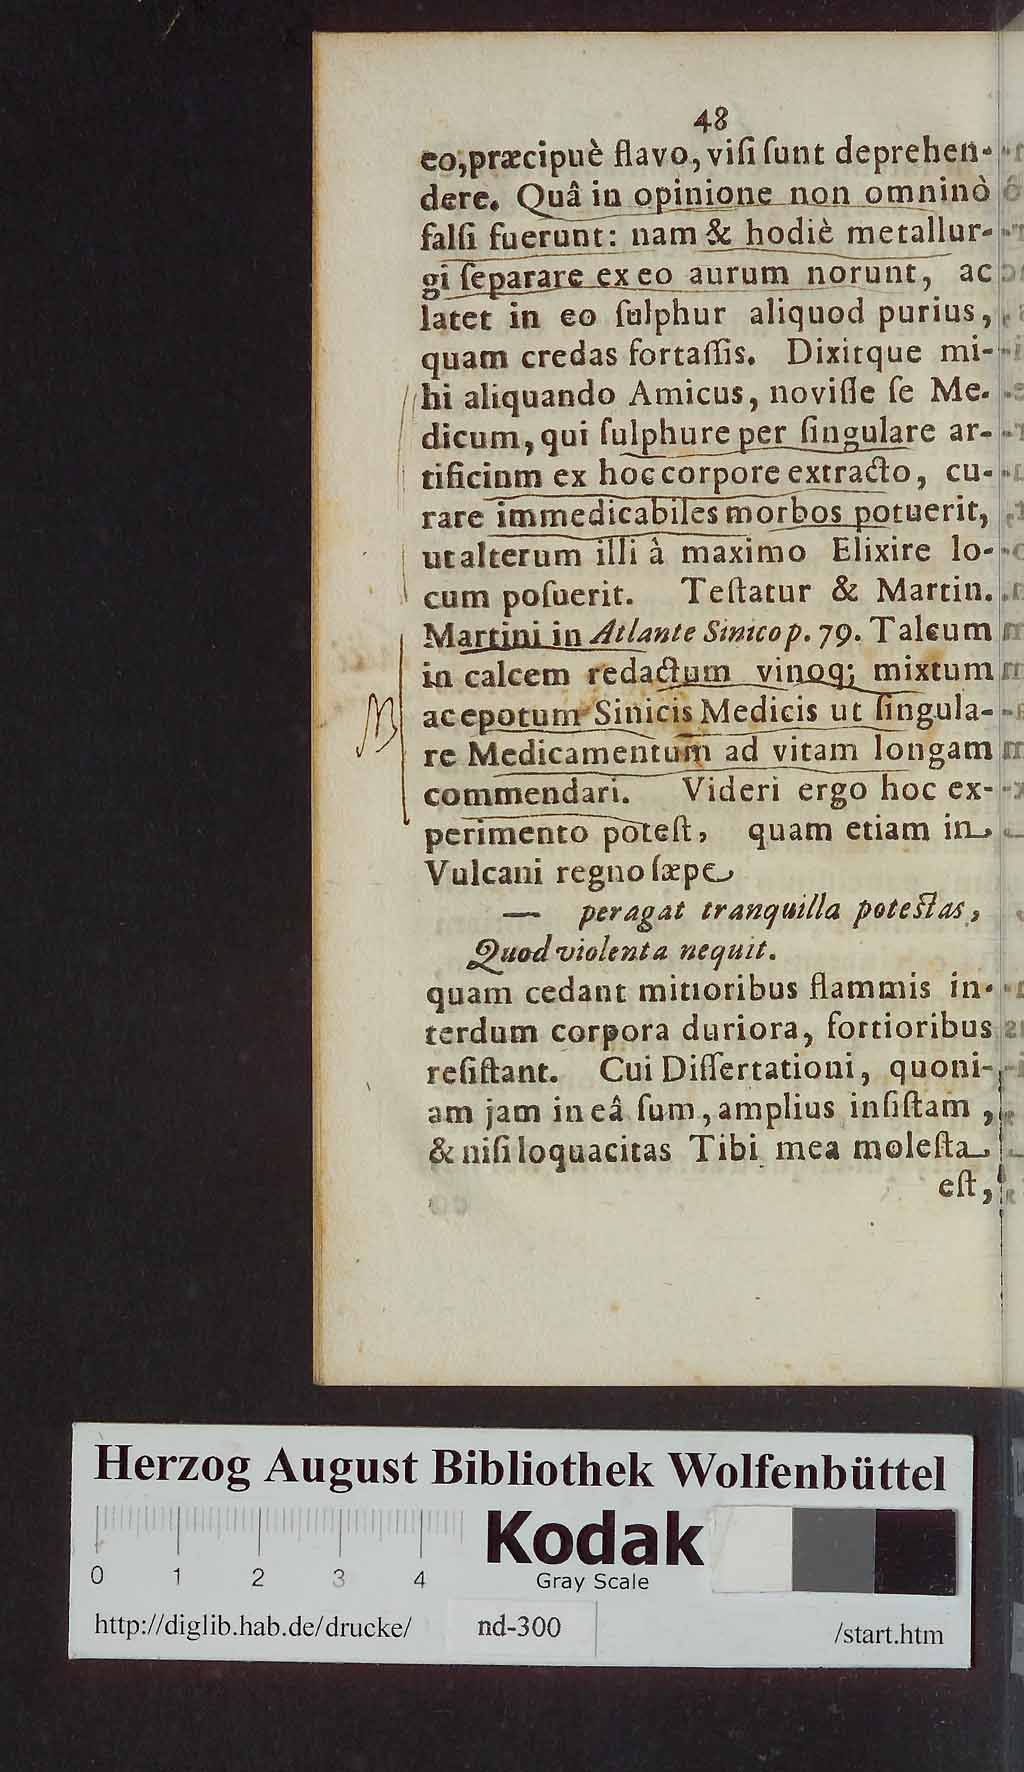 48
eo, præcipuè flavo, viſi ſunt deprehen-
dere. Quâ in opinione non omninò
falſi fuerunt: nam & hodiè metallur-
gi ſeparare ex eo aurum norunt, ac
latet in eo ſulphur aliquod purius,
quam credas fortaſſis. Dixitque mi-
hi aliquando Amicus, noviſſe ſe Me-
dicum, qui ſulphure per ſingulare ar-
tificium ex hoc corpore extracto, cu-
rare immedicabiles morbos potuerit,
ut alterum illi à maximo Elixire lo-
cum poſuerit. Teſtatur & Martin.
Martini in Atlante Sinico p. 79. Talcum
in calcem redactum vinoq; mixtum
ac epotum Sinicis Medicis ut ſingula-
re Medicamentum ad vitam longam
commendari. Videri ergo hoc ex-
perimento poteſt, quam etiam in
Vulcani regno ſæpe
— peragat tranquilla poteſtas,
Quod violenta nequit.
quam cedant mitioribus flammis in-
terdum corpora duriora, fortioribus
reſiſtant. Cui Diſſertationi, quoni-
am jam in eâ ſum, amplius inſiſtam,
& niſi loquacitas Tibi mea moleſta
eſt,
Herzog August Bibliothek Wolfenbüttel
Kodak
0 1 2 3 4
Gray Scale
http://diglib.hab.de/drucke/ nd-300 /start.htm